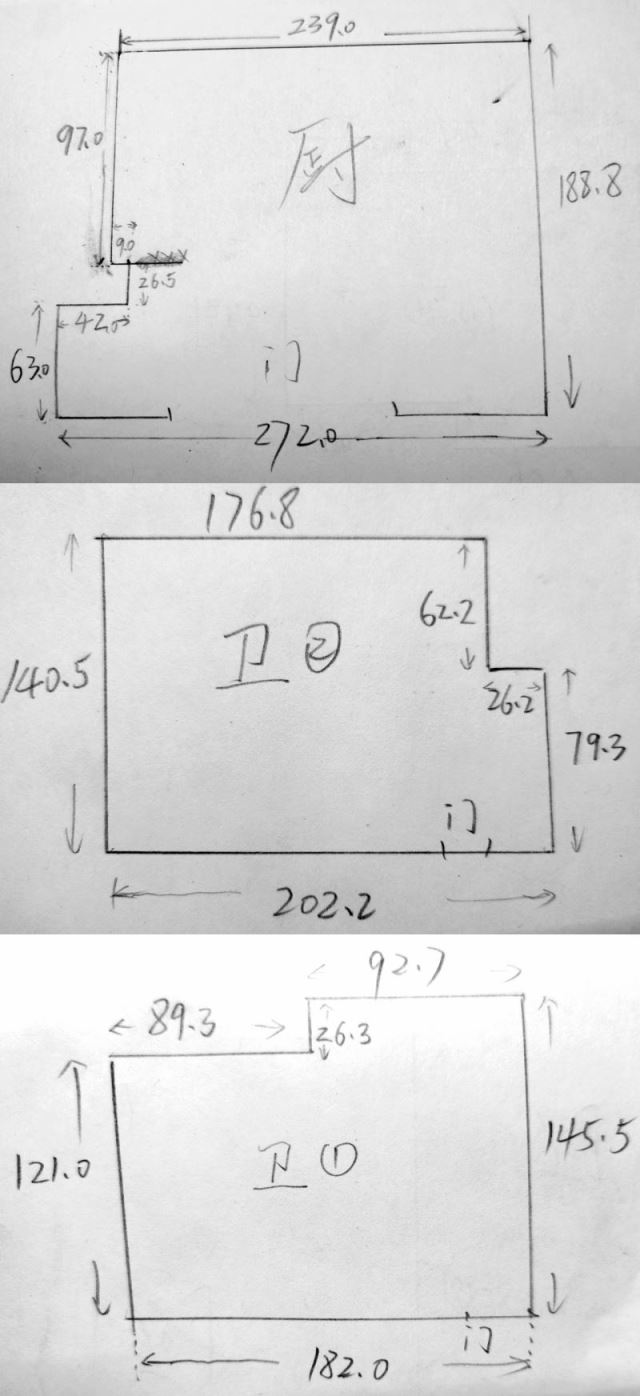 239.0
97.0
厨
188.8
9.0
26.5
42.0
63.0
门
272.0
176.8
62.2
卫②
140.5
26.2
79.3
门
202.2
92.7
89.3
26.3
卫①
121.0
145.5
门
182.0